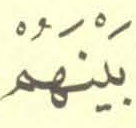 بَيْنَهُمْ